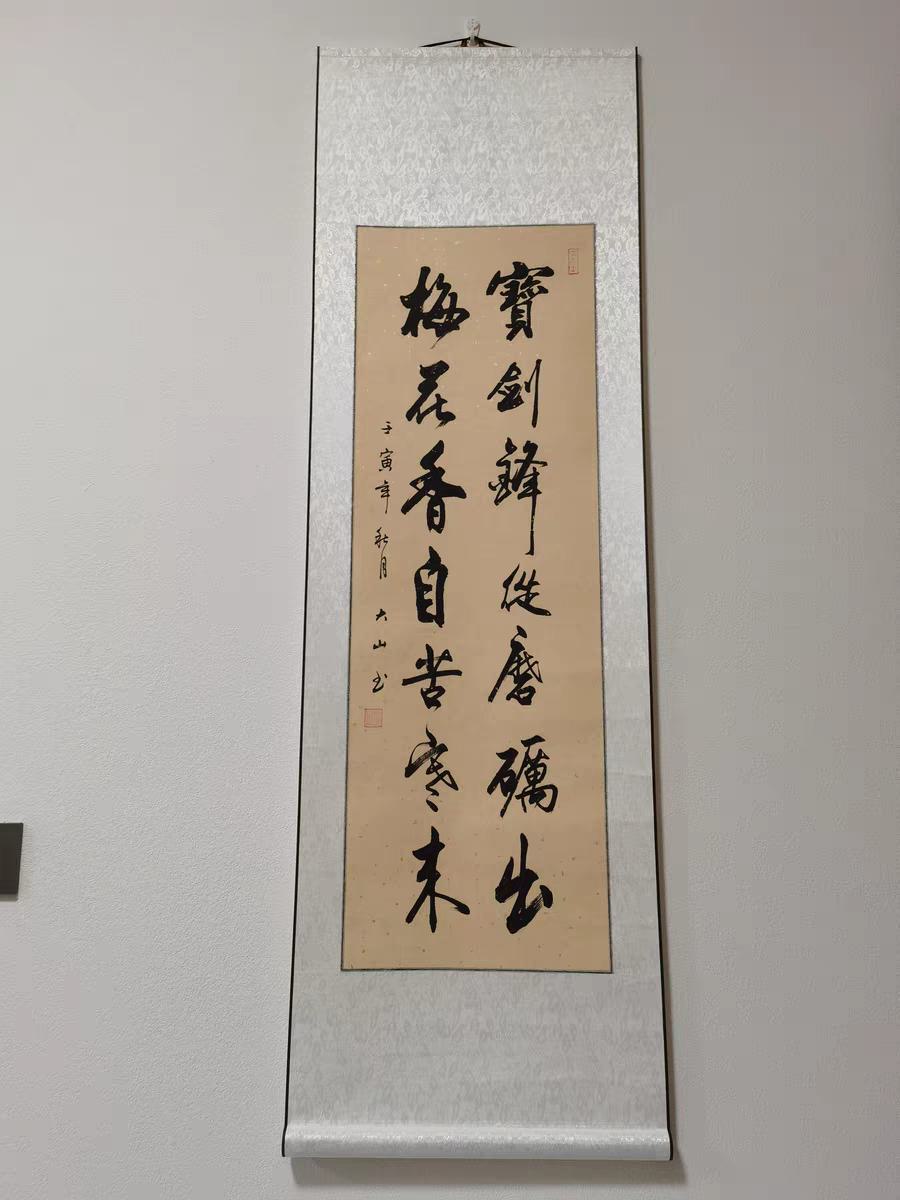 寶劍鋒從磨礪出
梅花香自苦寒来
壬寅年秋月大山书